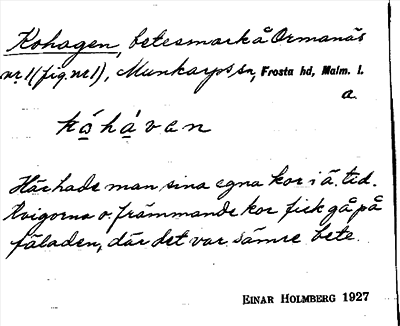 Kohagen, betesmark å Ormanäs
nr 1 (fig. nr 1), Munkarps sn, Frosta hd, Malm. l.
a.
kǻhàvan
Här hade man sina egna kor i ä. tid.
Kvigorna o. främmande kor fick gå på
fäladen, där det var sämre bete.
EINAR HOLMBERG 1927